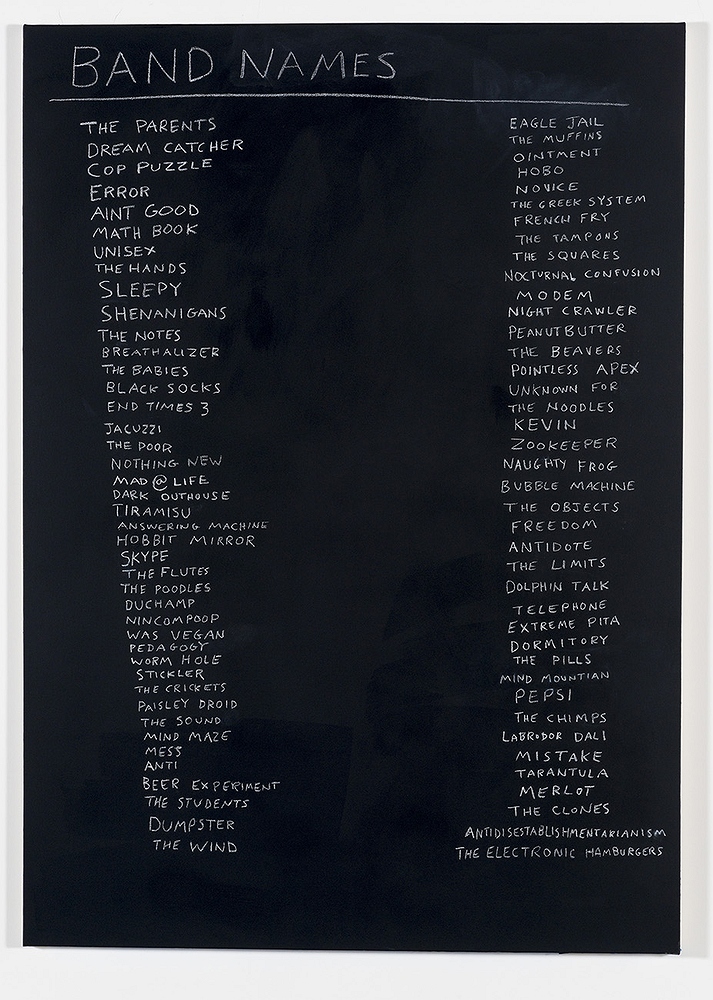 BAND NAMES
THE PARENTS
DREAM CATCHER
COP PUZZLE
ERROR
AINT GOOD
MATH BOOK
UNISEX
THE HANDS
SLEEPY
SHENANIGANS
THE NOTES
BREATHALIZER
THE BABIES
BLACK SOCKS
END TIMES 3
JACUZZI
THE POOR
NOTHING NEW
MAD @ LIFE
DARK OUTHOUSE
TIRAMISU
ANSWERING MACHINE
HOBBIT MIRROR
SKYPE
THE FLUTES
THE POODLES
DUCHAMP
NINCOMPOOP
WAS VEGAN
PEDAGOGY
WORM HOLE
STICKLER
THE CRICKETS
PAISLEY DROID
THE SOUND
MIND MAZE
MESS
ANTI
BEER EXPERIMENT
THE STUDENTS
DUMPSTER
THE WIND
EAGLE JAIL
THE MUFFINS
OINTMENT
HOBO
NOVICE
THE GREEK SYSTEM
FRENCH FRY
THE TAMPONS
THE SQUARES
NOCTURNAL CONFUSION
MODEM
NIGHT CRAWLER
PEANUT BUTTER
THE BEAVERS
POINTLESS APEX
UNKNOWN FOR
THE NOODLES
KEVIN
ZOOKEEPER
NAUGHTY FROG
BUBBLE MACHINE
THE OBJECTS
FREEDOM
ANTIDOTE
THE LIMITS
DOLPHIN TALK
TELEPHONE
EXTREME PITA
DORMITORY
THE PILLS
MIND MOUNTIAN
PEPSI
THE CHIMPS
LABRODOR DALI
MISTAKE
TARANTULA
MERLOT
THE CLONES
ANTIDISESTABLISHMENTARIANISM
THE ELECTRONIC HAMBURGERS